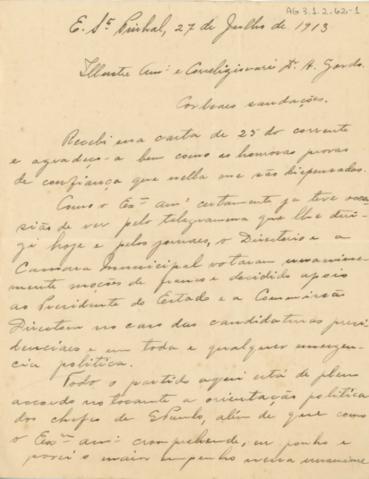 AG 3.1.2.62-1
E. Sto Pinhal, 27 de Julho de 1913
Illustre Amo e Correligionario Dr. A. Gordo.
Cordeaes saudações.
Recebi sua carta de 25 do corrente
e agradeço-a bem como as honrosas provas
de confiança que nella me são dispensadas.
Como o Exmo amo certamente ja teve occa
sião de ver pelo telegramma que lhe diri-
gi hoje e pelos jornaes, o Directorio e a
Camara Municipal votaram unanime-
mente moções de franco e decidido apoio
ao Presidente do Estado e a Commissão
Directora no caso das candidaturas presi
denciaes e em toda e qualquer emergen-
cia politica.
Todo o partido aqui está de pleno
accordo no tocante a orientação politica
dos chefes de S Paulo, alem de que como
o Exmo amo comprehende, eu ponho e
porei o maior empenho nessa unanime